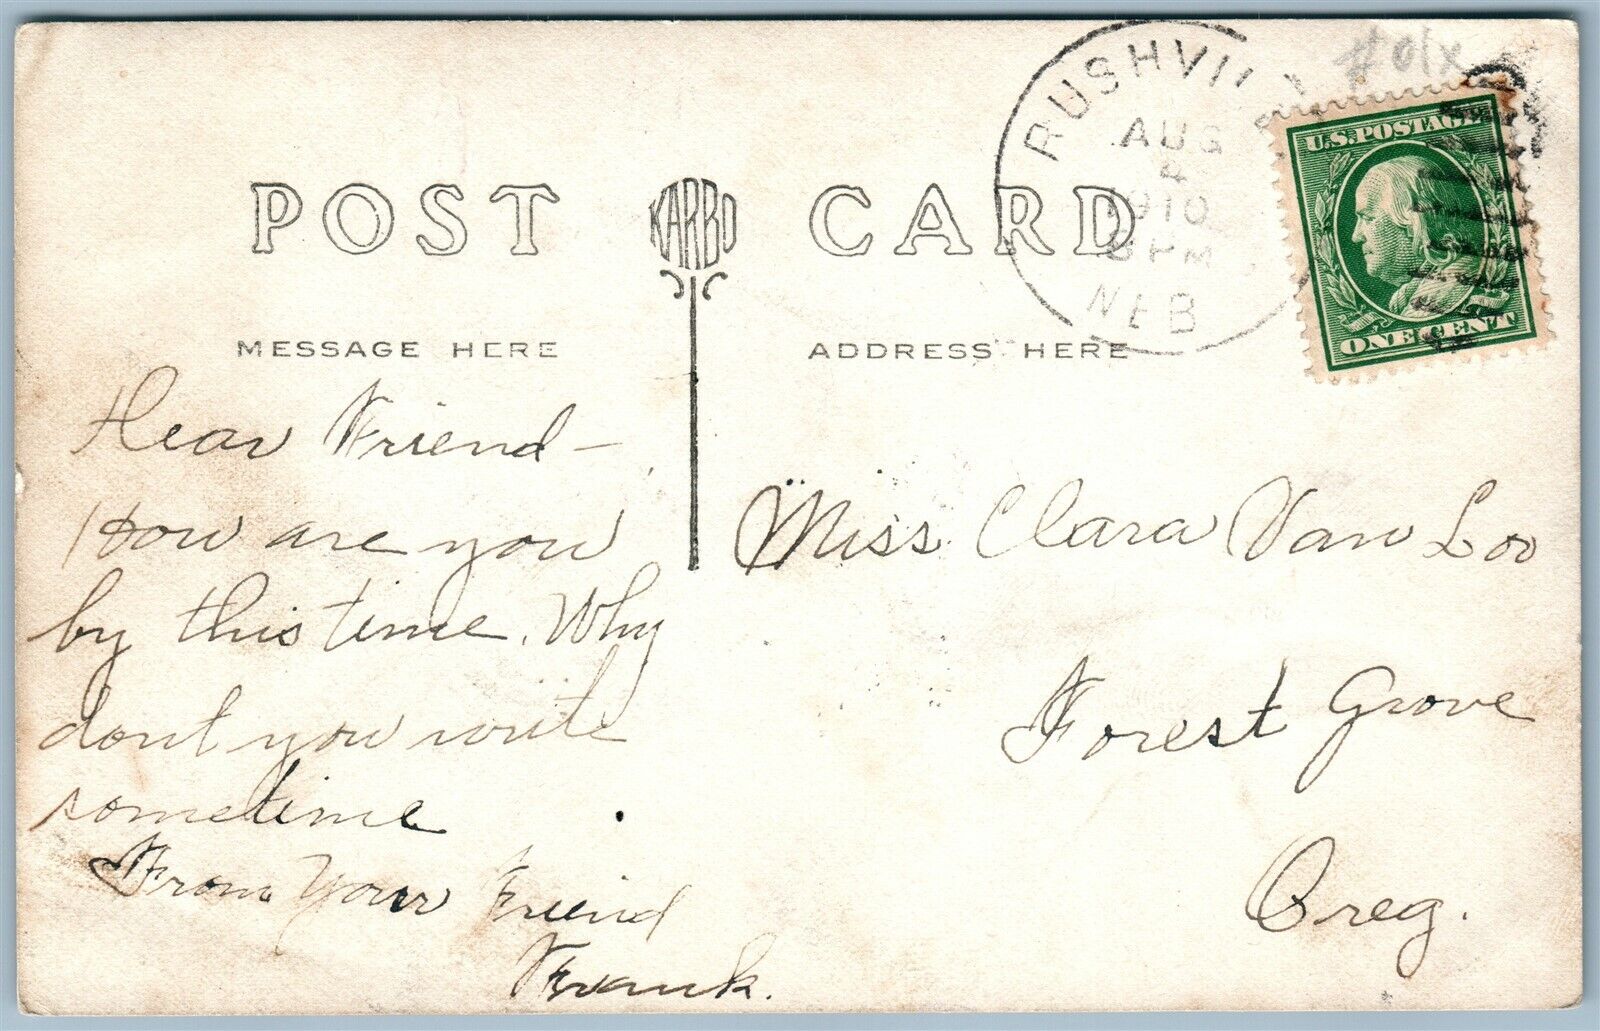 POST KARBO CARD
MESSAGE HERE
ADDRESS HERE
RUSHVILL
AUG
4
1910
8 PM
NEB
#01x
U.S. POSTAGE
ONE CENT
Dear Friend —
How are you
by this time. Why
dont you write
sometime
From Your Friend
Frank.
Miss Clara Van Loo
Forest Grove
Oreg.